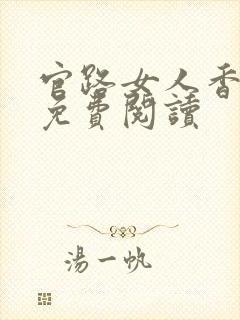 官路女人香
免費閱讀
湯一帆